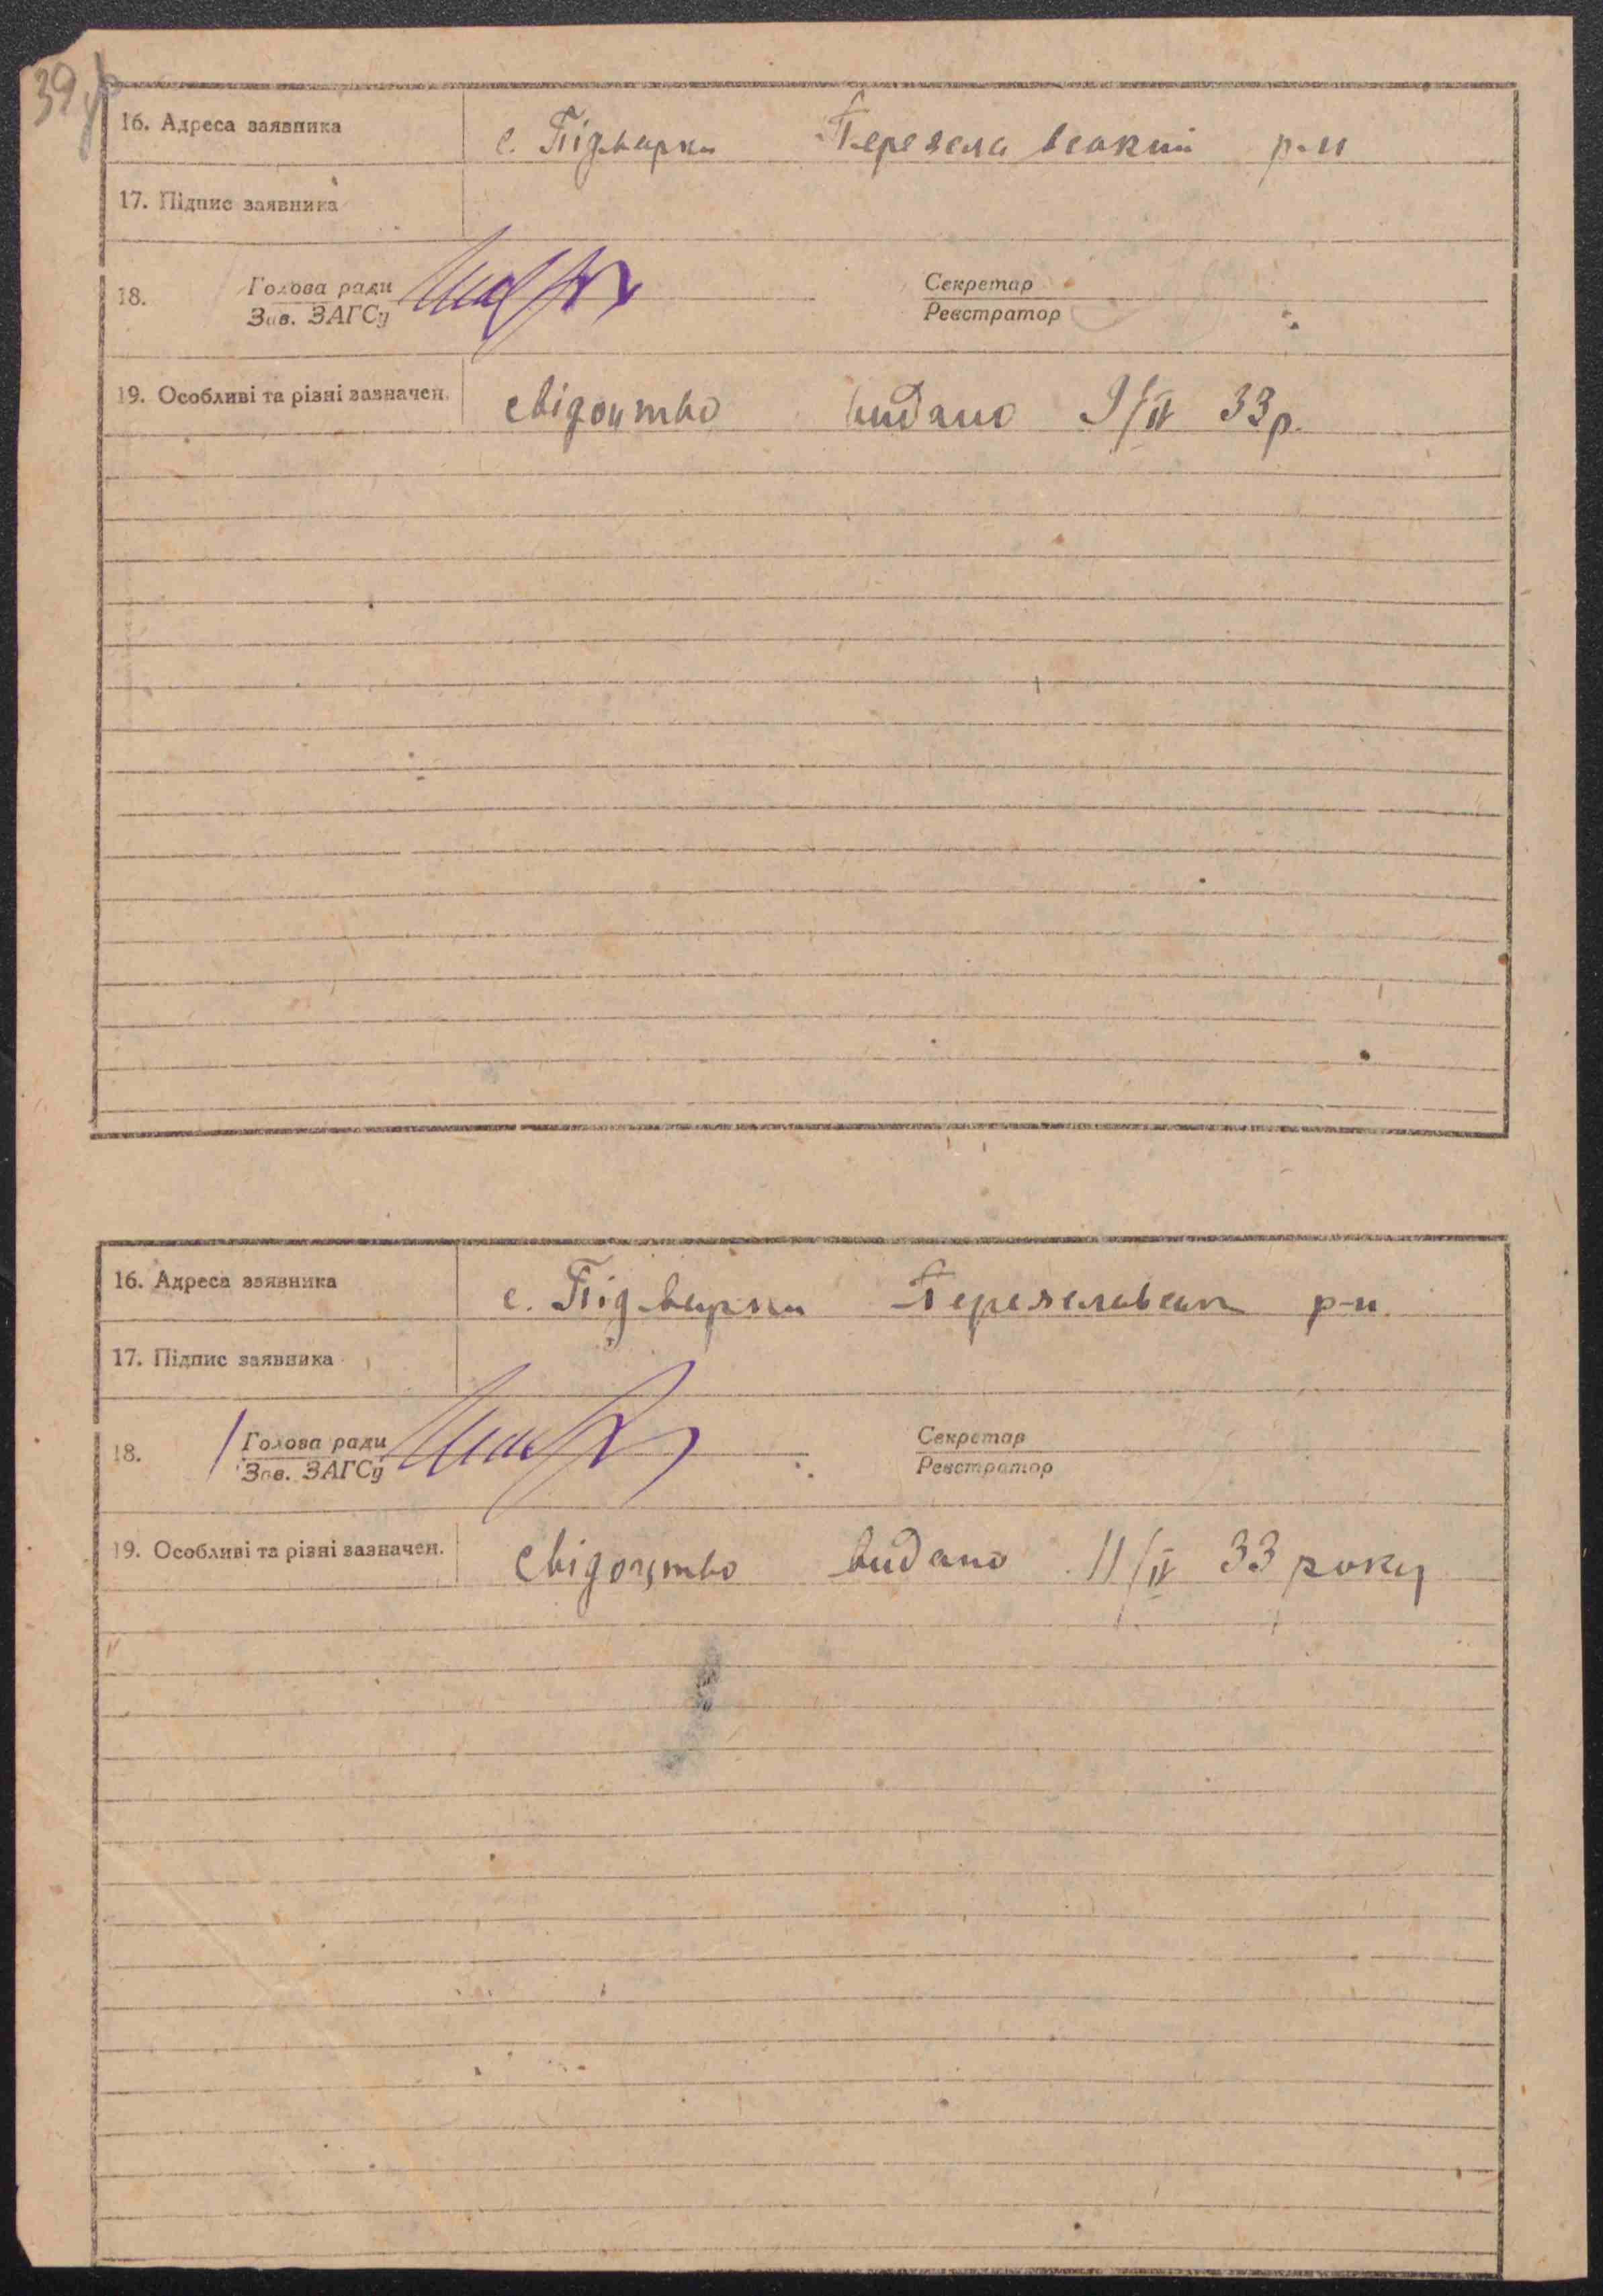 39
16. Адреса заявника с. Підварки Переяславський р-н
17. Підпис заявника
18. Голова ради Секретар
Зав. ЗАГСу Реєстратор
19. Особливі та різні зазначен. свідоцтво видано 9/IV 33 р.
16. Адреса заявника с. Підварки Переяславськ р-н.
17. Підпис заявника
18. Голова ради Секретар
Зав. ЗАГСу Реєстратор
19. Особливі та різні зазначен. свідоцтво видано 11/IV 33 року